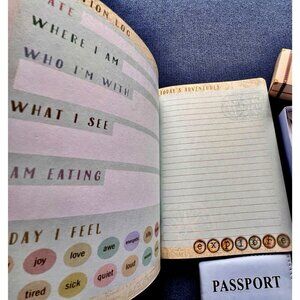 ATE
TION LOG
WHERE I AM
WHO I'M WITH
WHAT I SEE
AM EATING
DAY I FEEL
joy
love
awe
tired
sick
quiet
loud
TODAY'S ADVENTURES
explore
PASSPORT